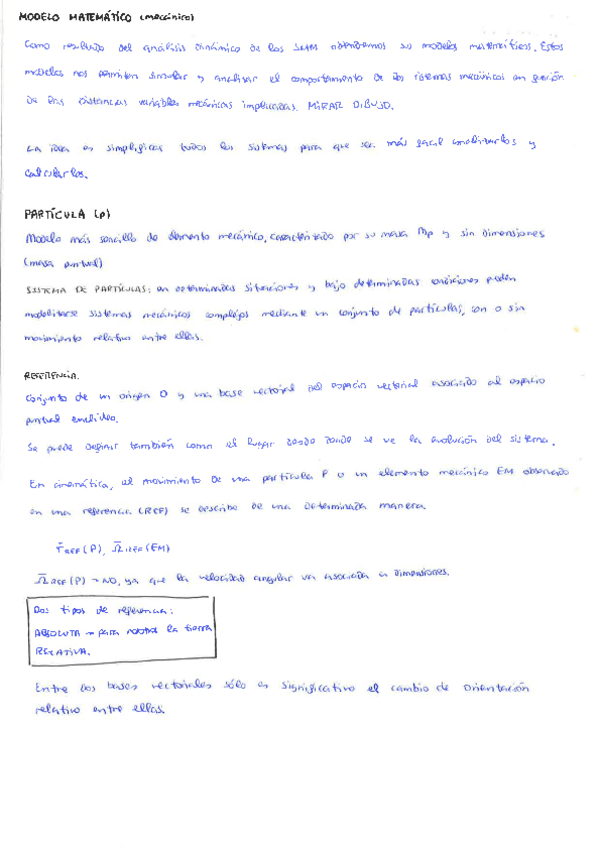 MODELO MATEMÁTICO (mecánico)
Como resultado del análisis dinámico de los obtendremos su modelos matemáticos. Estos
modelos nos permiten simular y analizar el comportamiento de los sistemas mecánicos en función
de las distancias variables mecánicas implicadas. MIRAR DIBUJO.
La idea es simplificar todos los sistemas para que sea más facil analizarlos y
calcularlos.
PARTÍCULA (P)
Modelo más sencillo de elemento mecánico, caracterizado por su masa Mp y sin dimensiones
(masa puntual)
SISTEMA DE PARTÍCULAS: en determinadas situaciones y bajo determinadas condiciones pueden
modelitarse sistemas mecánicos complejos mediante un conjunto de partículas, con o sin
movimiento relativo entre ellas.
REFERENCIA.
Conjunto de un origen O y una base vectorial del espacio vectorial asociado al espacio
puntual euclideo.
Se puede definir también como el lugar desde donde se ve la evolución del sistema.
En cinemática, el movimiento de una partícula P o un elemento mecánico EM observado
en una referencia (REF) se describe de una determinada manera.
r̄REF(P), Ω̄REF(EM)
Ω̄REF(P) → NO, ya que la velocidad angular va asociada a dimensiones.
Dos tipos de referencia:
ABSOLUTA → para nosotros la tierra
RELATIVA.
Entre dos bases vectoriales sólo es significativo el cambio de orientación
relativo entre ellas.